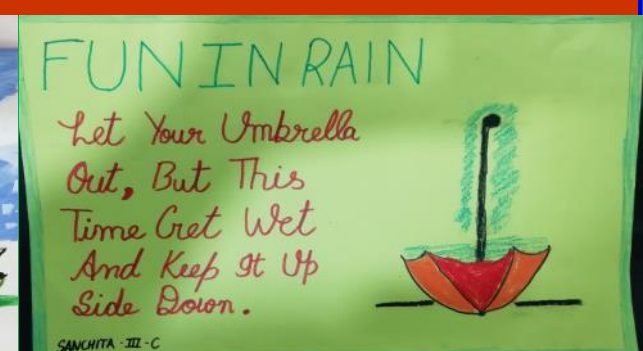 FUN IN RAIN
Let Your Umbrella
Out, But This
Time Get Wet
And Keep It Up
Side Down.
SANCHITA - III - C